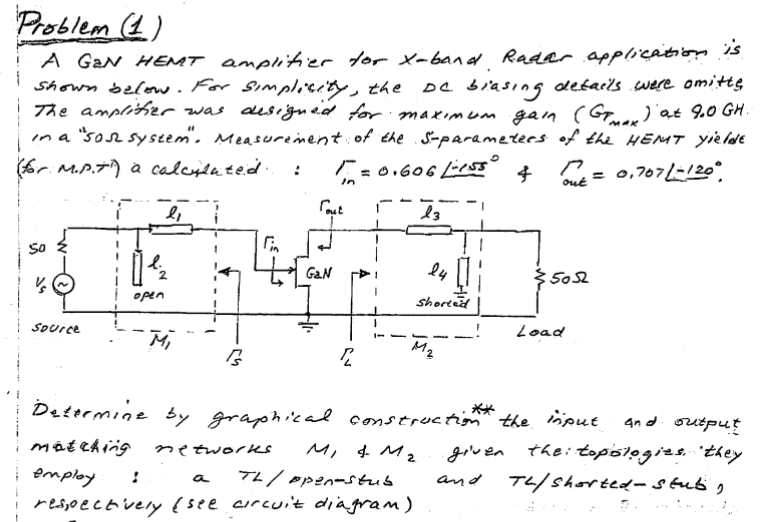 Problem (1)
A GaN HEMT amplifier for X-band Radar application is
shown below. For Simplicity, the DC biasing details were omitte
The amplifier was designed for maximum gain (GTmax) at 9.0 GH
in a "50Ω system". Measurement of the S-parameters of the HEMT yields
(for M.P.T) a calculated : Γin = 0.606 ∠-155° & Γout = 0.707∠-120°.
l1
Γout
l3
50
l2
Γin
GaN
l4
50Ω
Vs
open
shorted
source
M1
Γs
ΓL
M2
Load
Determine by graphical construction** the input and output
matching networks M1 & M2 given the topologies they
employ : a TL/open-stub and TL/shorted-stub,
respectively (see circuit diagram)